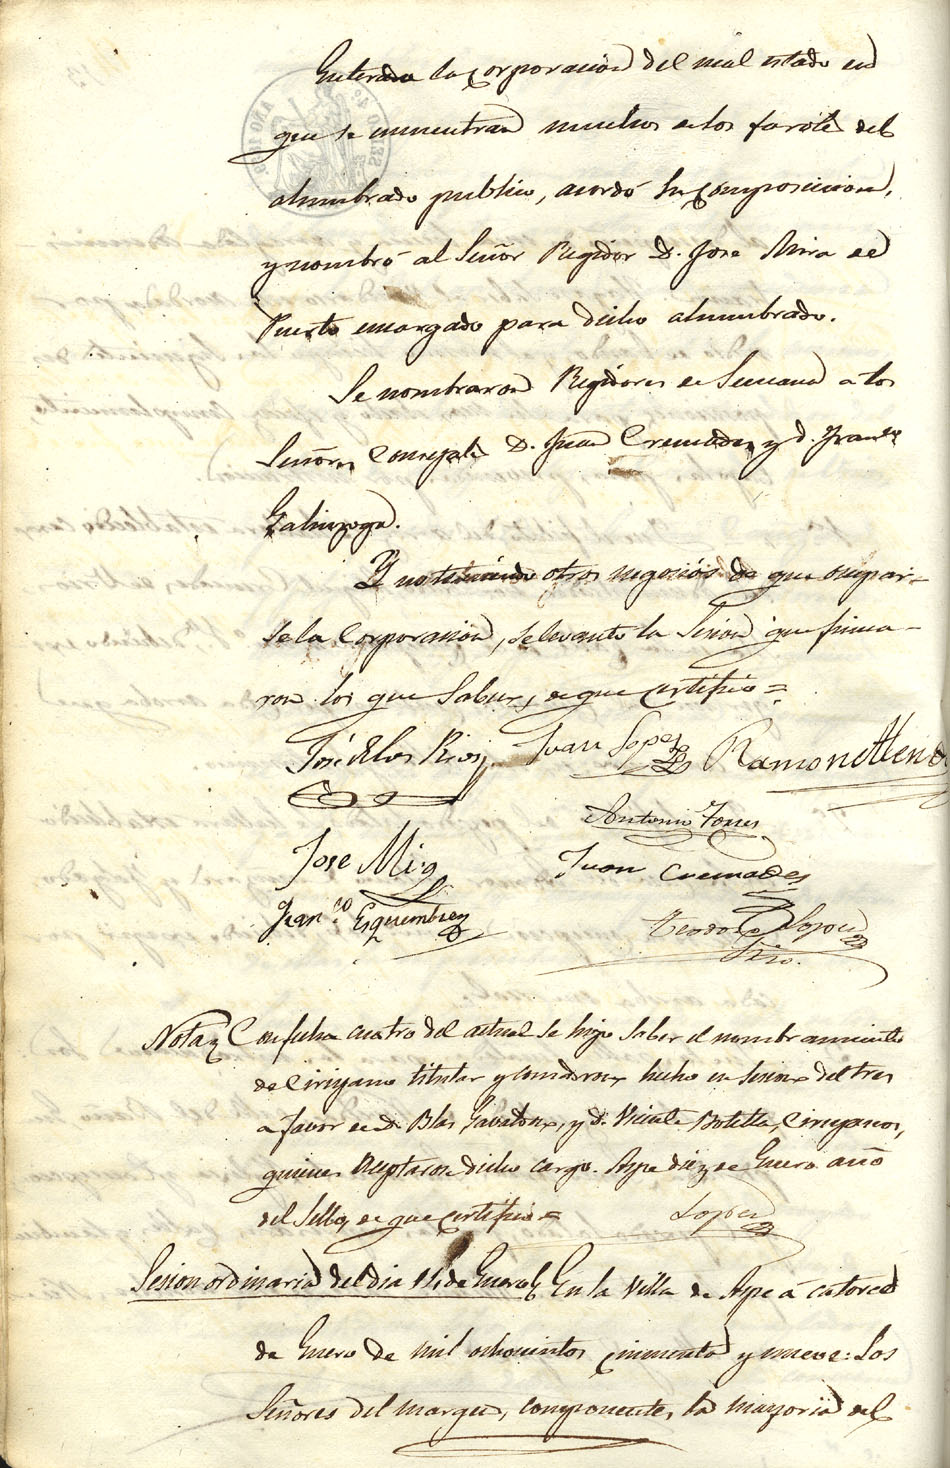 Enterada la Corporacion del mal estado en
que se encuentran muchos de los faroles del
alumbrado publico, acordó su composicion,
y nombró al Señor Regidor D. Jose Mira de
Puerto encargado para dicho alumbrado.
Se nombraron Regidores de Semana a los
Señores Concejales D. Juan Cremades, y d. Franco
Galinzoga.
Y no teniendo otros negocios de que ocupar-
se la Corporacion, se levantó la Sesion que firma-
ron los que Saben, de que certifico =
José de los Rios Juan Lopez Ramon
Antonio Torres
Jose Mira
Juan Cremades
Franco Esquembre
Teodoro Lopez
Srio.
Nota Con fecha cuatro del actual se hizo saber el nombramiento
de Cirujano titular y comadron, hecho en Sesion del tres
a favor de d. Blas y d. Vicente Botella, Cirujanos,
quienes aceptaron dicho cargo. Aspe diez de Enero año
del Sello, de que certifico =
Lopez
Sesion ordinaria del dia 14 de Enero En la Villa de Aspe á catorce
de Enero de mil ochocientos cincuenta y nueve: Los
Señores del margen, componentes la mayoria del